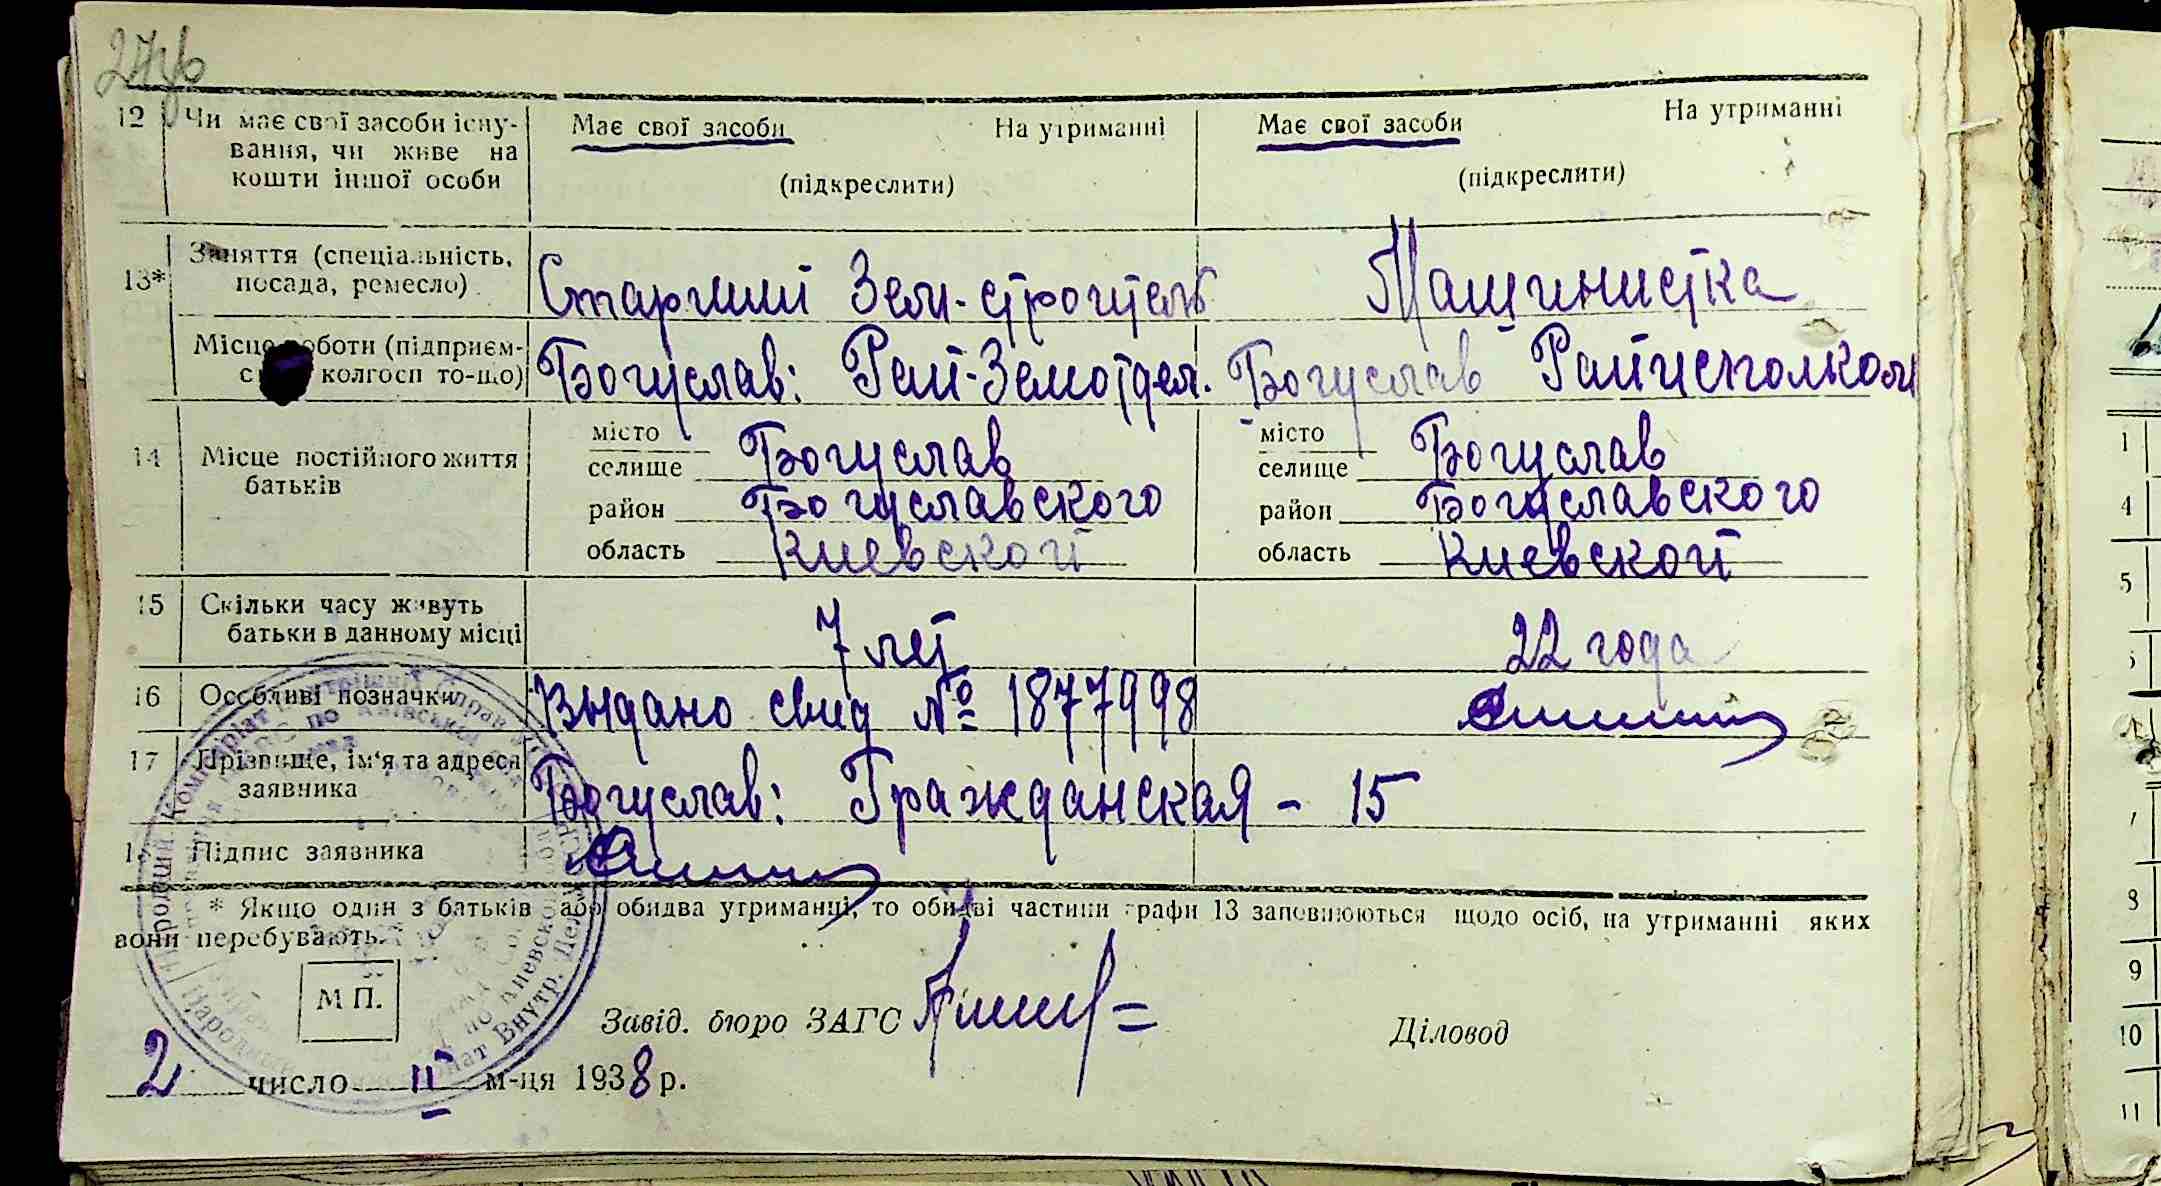 12 Чи має свої засоби існу- Має свої засоби На утриманні Має свої засоби На утриманні
вання, чи живе на
кошти іншої особи (підкреслити) (підкреслити)
13* Заняття (спеціальність,
посада, ремесло) Старший Зем-строитель Машинистка
Місце роботи (підприєм-
с колгосп то-що) Богуслав: Рай-Земотдел. Богуслав Райисполком
14 Місце постійного життя
батьків
місто
селище Богуслав
район Богуславского
область Киевской
місто
селище Богуслав
район Богуславского
область Киевской
15 Скільки часу живуть
батьки в данному місці 7 лет 22 года
16 Особливі позначки Выдано свид № 1877998
17 Прізвище, ім'я та адреса
заявника Богуслав: Гражданская - 15
Підпис заявника
* Якщо один з батьків або обидва утриманці, то обидві частини графи 13 заповнюються щодо осіб, на утриманні яких
вони перебувають.
М П.
Завід. бюро ЗАГС Діловод
2 число II м-ця 1938 р.
1
4
5
8
9
10
11